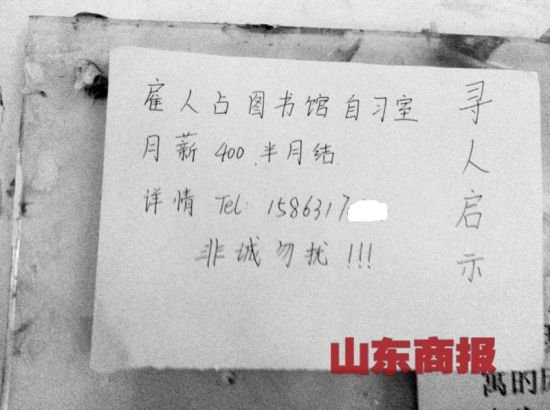 寻人启示
雇人占图书馆自习室
月薪400.半月结.
详情Tel:1586317
非诚勿扰!!!
山东商报
寓的